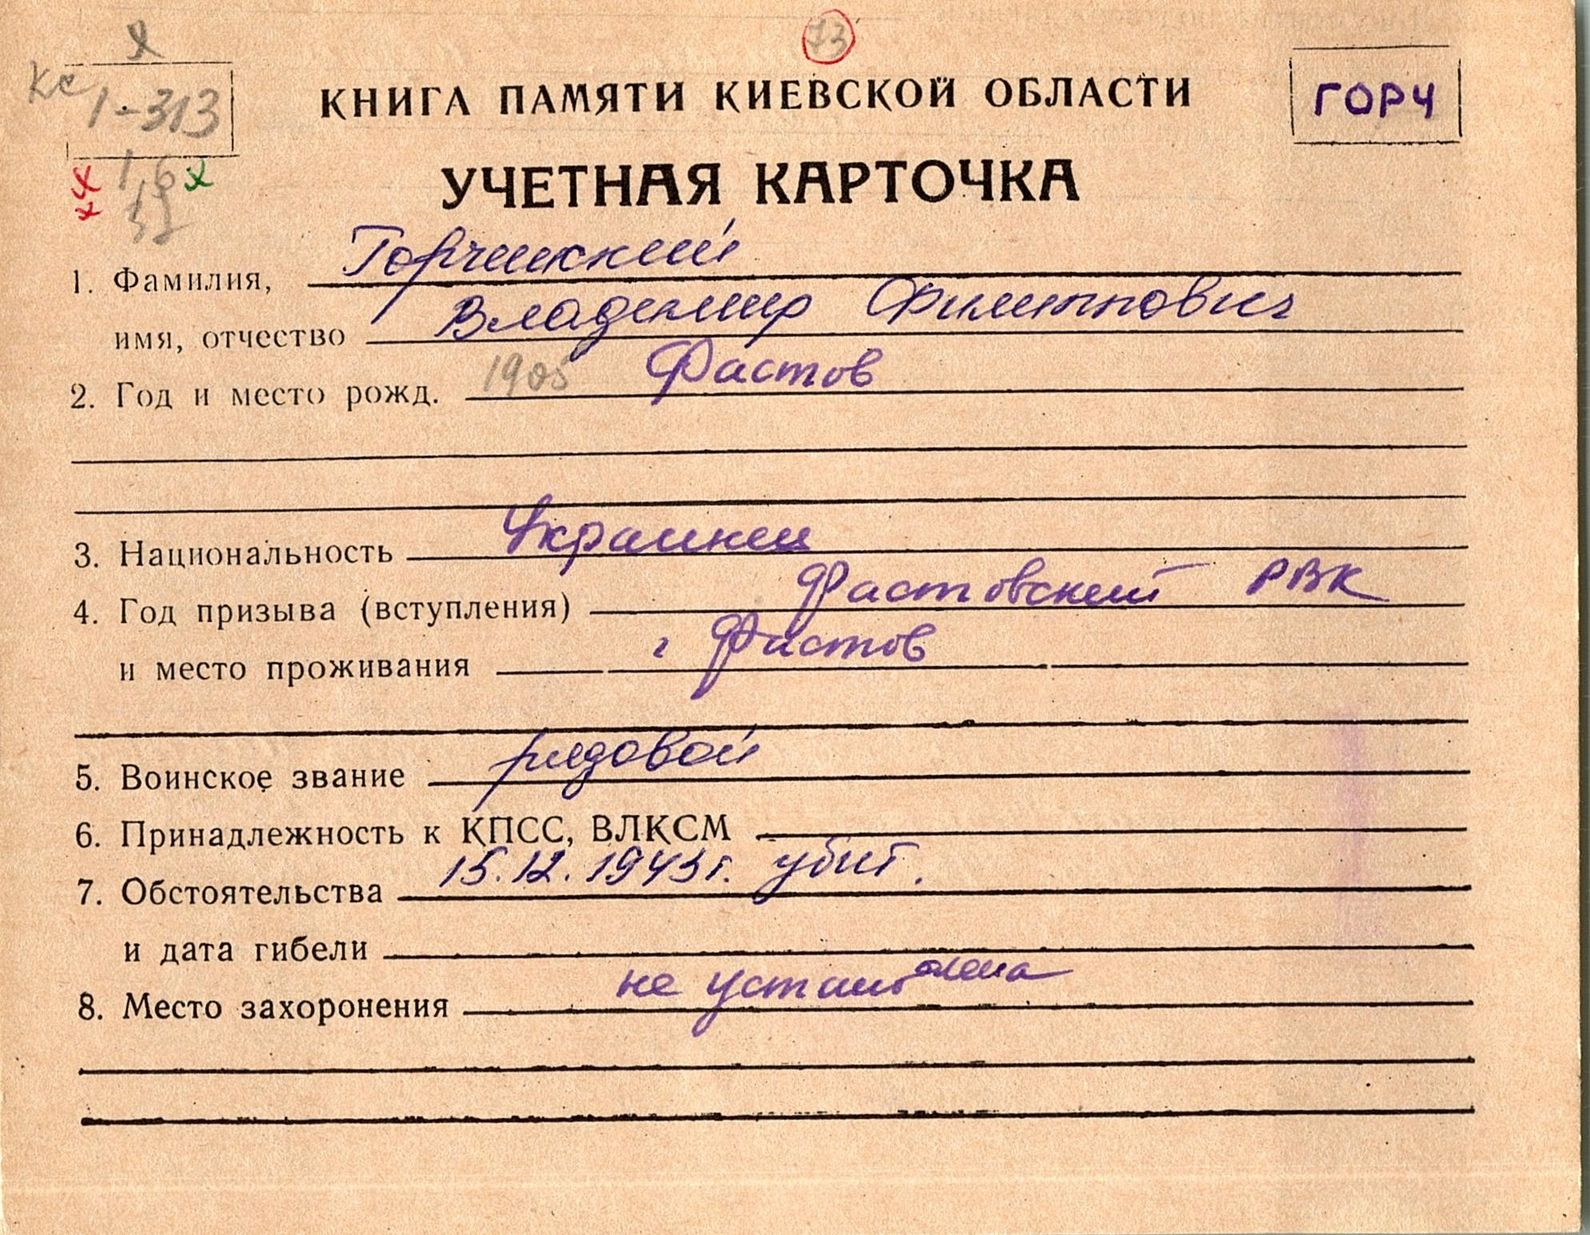 73
Кс 1-313
КНИГА ПАМЯТИ КИЕВСКОЙ ОБЛАСТИ
ГОРЧ
УЧЕТНАЯ КАРТОЧКА
1. Фамилия, Горчинский
имя, отчество Владимир Филиппович
2. Год и место рожд. 1905 Фастов
3. Национальность Украинец
4. Год призыва (вступления) Фастовский РВК
и место проживания г Фастов
5. Воинское звание рядовой
6. Принадлежность к КПСС, ВЛКСМ
7. Обстоятельства 15.12.1943г. убит.
и дата гибели
8. Место захоронения не установлена